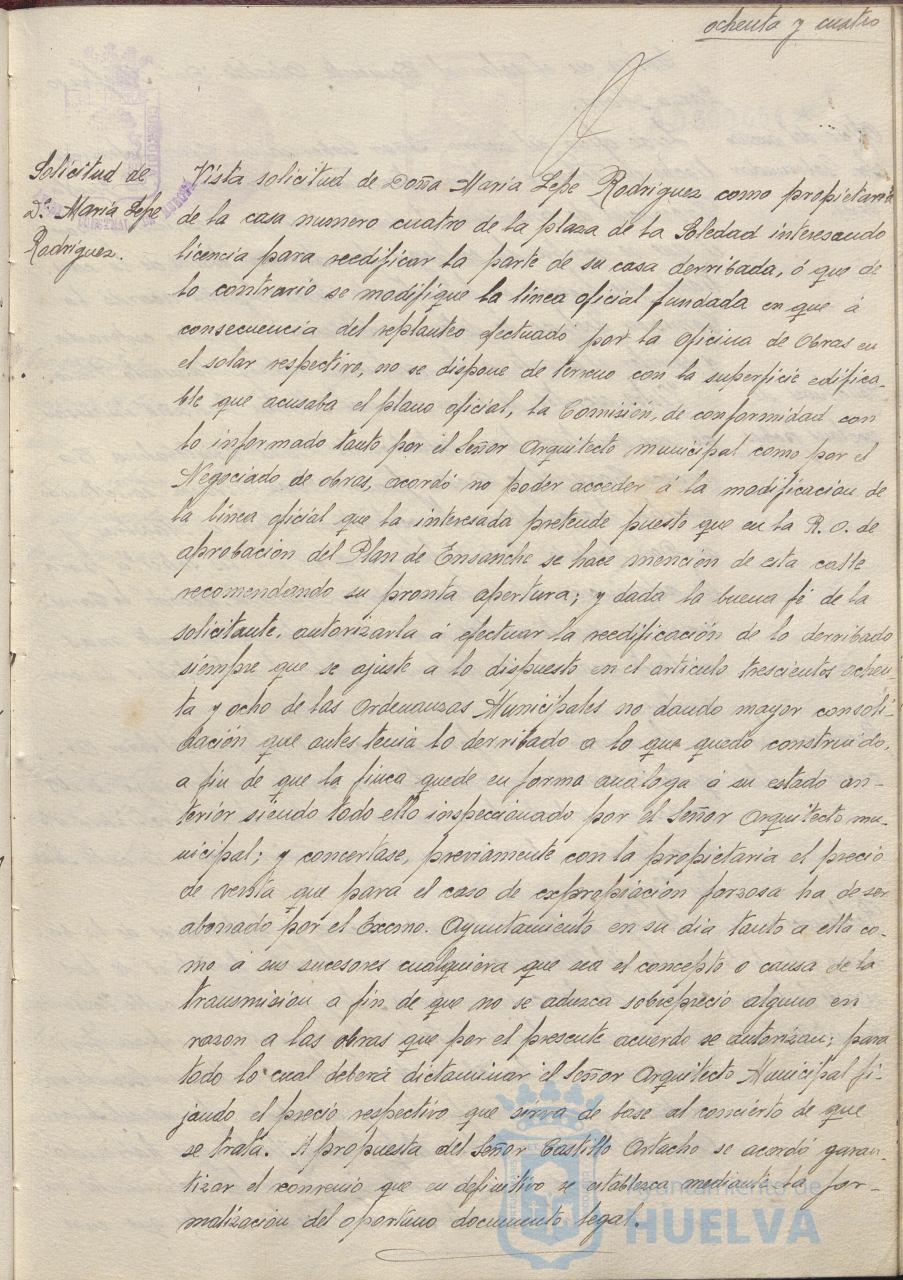 ochenta y cuatro
Solicitud de
Dª. María Lepe
Rodriguez.
Vista solicitud de Doña María Lepe Rodriguez como propietaria
de la casa numero cuatro de la plaza de la Soledad interesando
licencia para reedificar la parte de su casa derribada, ó que de
lo contrario se modifique la línea oficial fundada en que á
consecuencia del replanteo efectuado por la oficina de Obras en
el solar respectivo, no se dispone de terreno con la superficie edifica-
ble que acusaba el plano oficial, la Comisión, de conformidad con
lo informado tanto por el Señor Arquitecto municipal como por el
Negociado de obras, acordó no poder acceder á la modificacion de
la línea oficial que la interesada pretende puesto que en la R. O. de
aprobación del Plan de Ensanche se hace mención de esta calle
recomendando su pronta apertura; y dada la buena fé de la
solicitante, autorizarla á efectuar la reedificación de lo derribado
siempre que se ajuste a lo dispuesto en el artículo trescientos ochen-
ta y ocho de las Ordenanzas Municipales no dando mayor consoli-
dación que antes tenia lo derribado a lo que quedo construido,
a fin de que la finca quede en forma análoga á su estado an-
terior siendo todo ello inspeccionado por el Señor Arquitecto mu-
nicipal; y concertase, previamente con la propietaria el precio
de venta que para el caso de expropiación forzosa ha de ser
abonado por el Excmo. Ayuntamiento en su dia tanto a ella co-
mo á sus sucesores cualquiera que sea el concepto o causa de la
transmision a fin de que no se aduzca sobreprecio alguno en
razon a las obras que por el presente acuerdo se autorizan; para
todo lo cual deberá dictaminar el Señor Arquitecto Municipal fi-
jando el precio respectivo que sirva de base al concierto de que
se trata. A propuesta del Señor Castillo Artacho se acordó garan-
tizar el convenio que en definitivo se establezca mediante la for-
malización del oportuno documento legal.
Ayuntamiento de
HUELVA